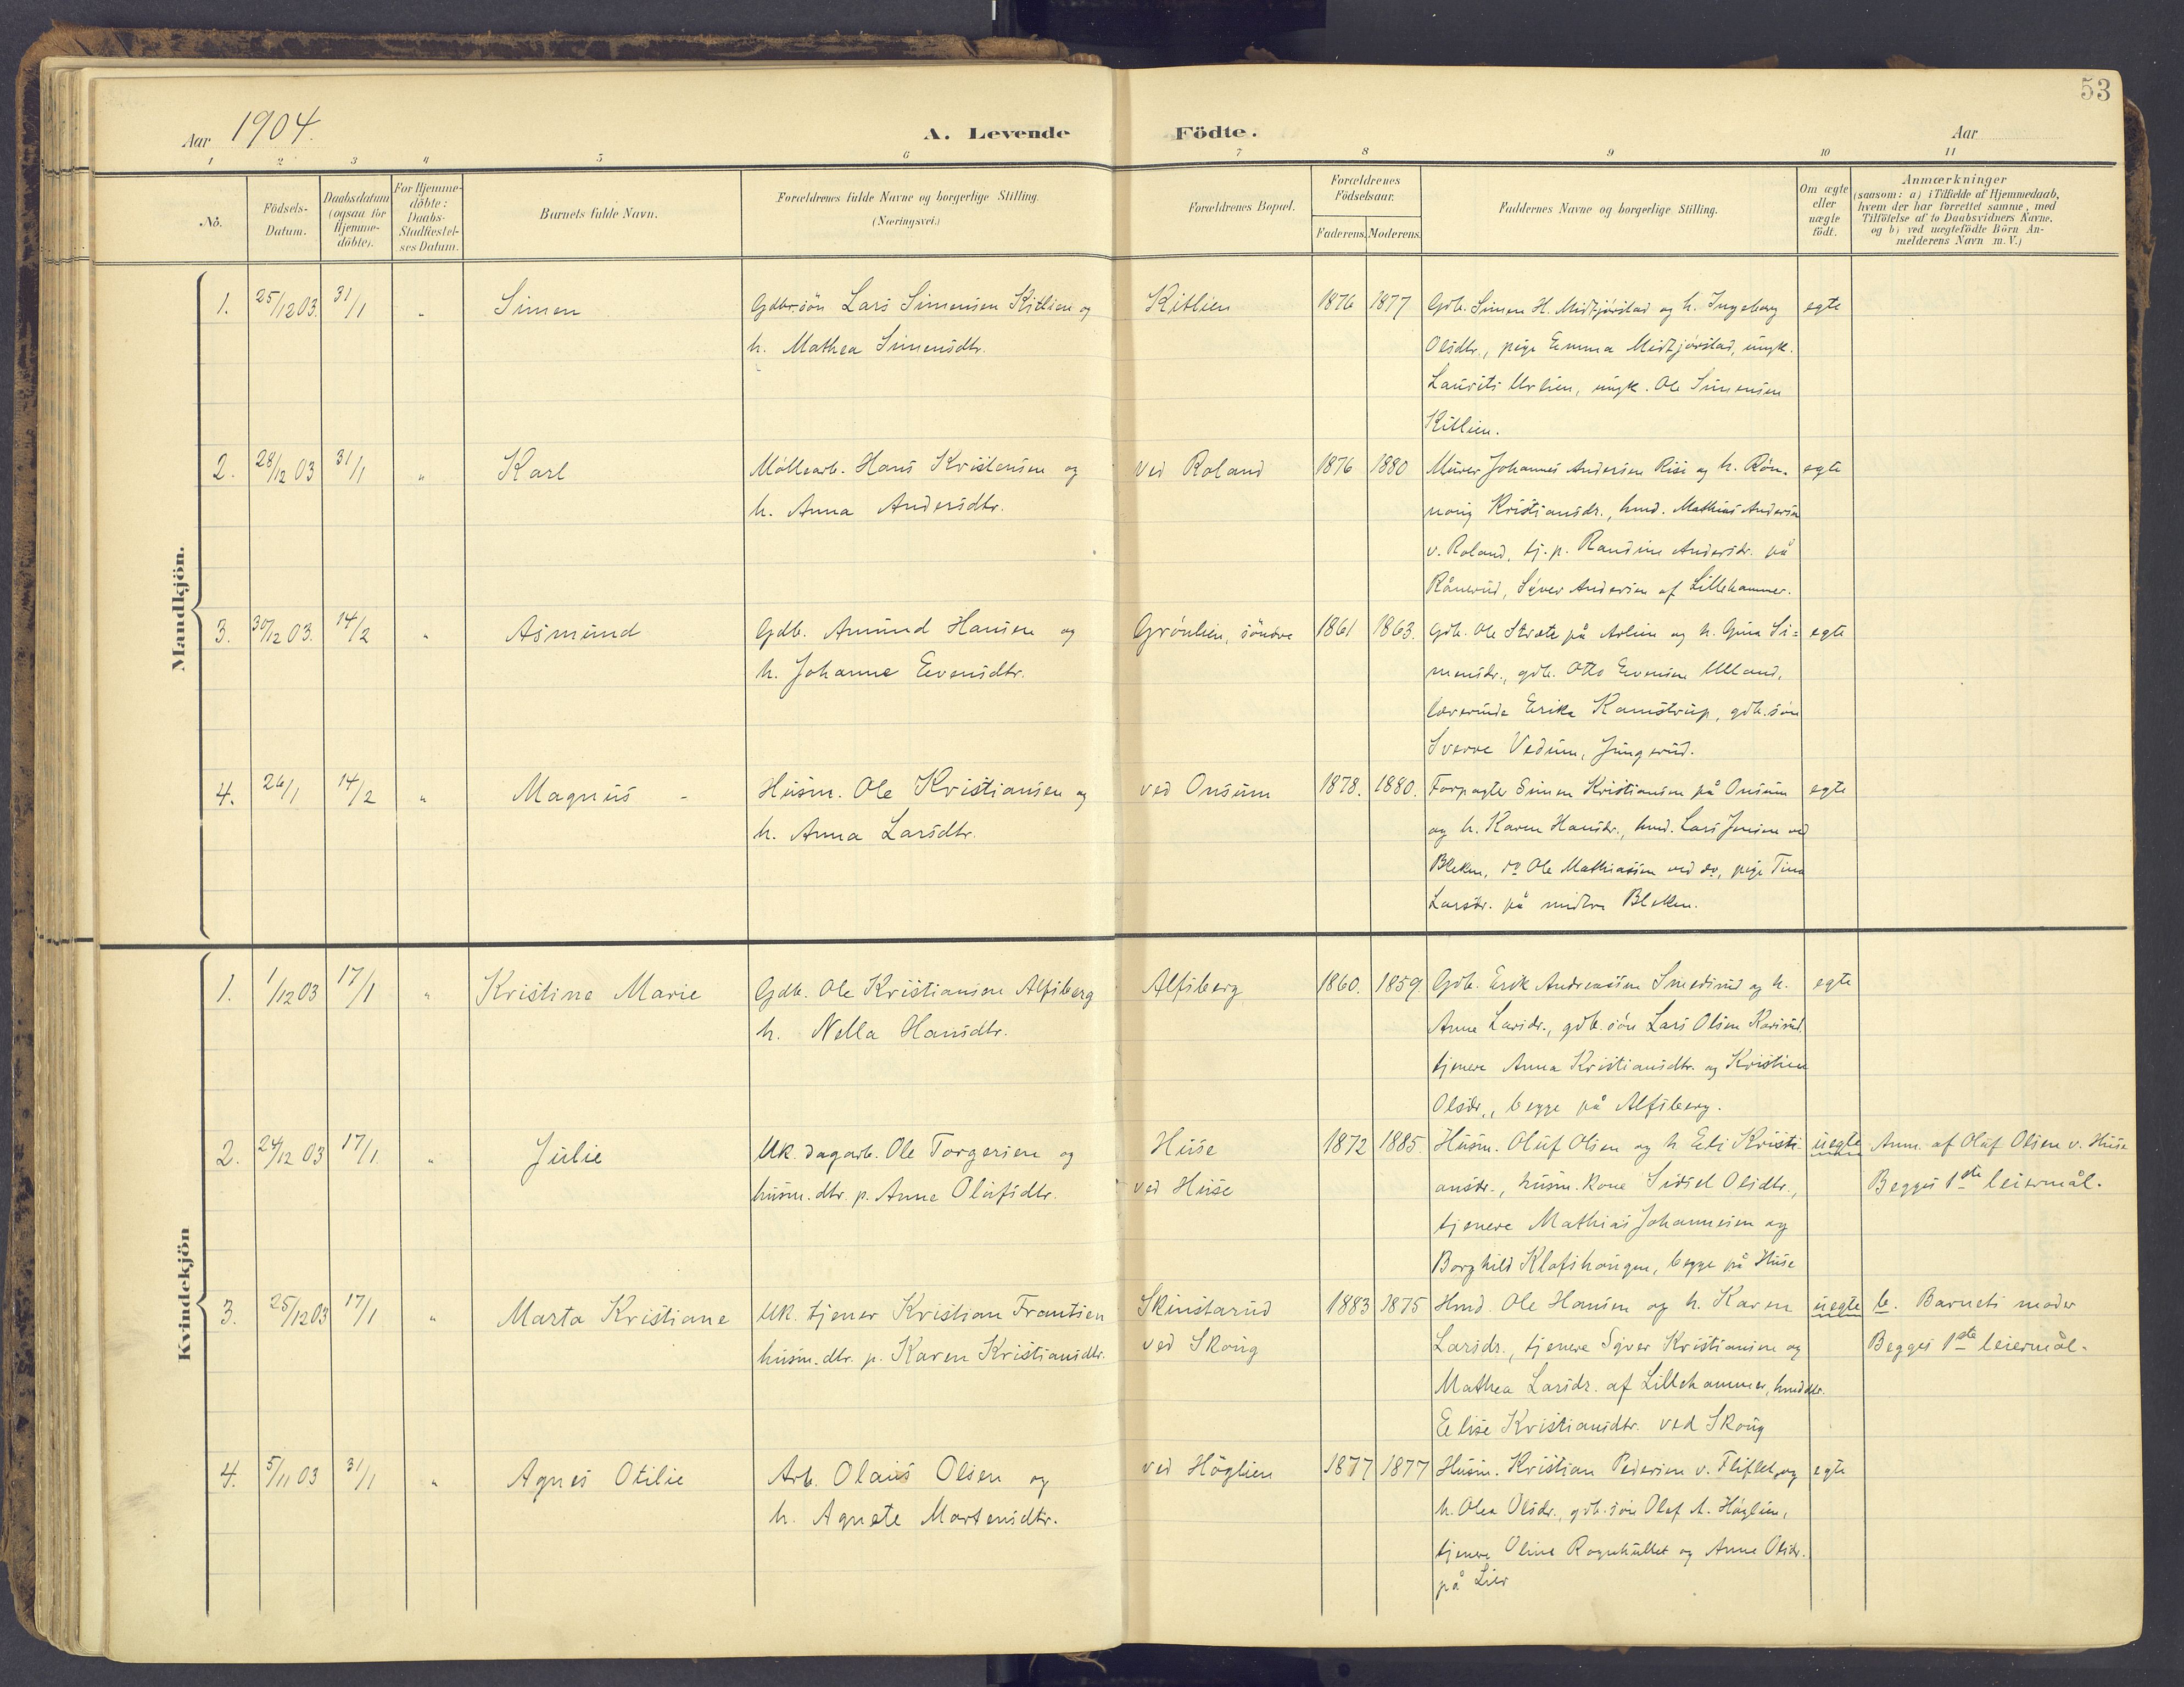 53
Aar 1904.
A. Levende Födte.
Aar
1 2 3 4 5 6 7 8 9 10 11
No. Födsels-Datum. Daabsdatum (ogsaa for Hjemme-döbte). For Hjemme-döbte: Daabs-Stadfæstel-ses Datum. Barnets fulde Navn. Forældrenes fulde Navne og borgerlige Stilling. (Næringsvei.) Forældrenes Bopæl. Forældrenes Födselsaar. Faderens. Moderens. Faddernes Navne og borgerlige Stilling. Om ægte eller uægte födt. Anmærkninger (saasom: a) i Tilfælde af Hjemmedaab, hvem der har forrettet samme, med Tilföielse af to Daabsvidners Navne. og b) ved uægtefödte Börn An-melderens Navn m. V.)
Mandkjön.
1. 25/12 03. 31/1 " Simen Gdbr.sön Lars Simensen Kitlien og Kitlien 1876 1877 Gdb. Simen H. Midtjørstad og h. Ingeborg egte
h. Mathea Simensdtr. Olsdtr., pige Emma Midtjørstad, ungk.
Laurits Urlien, ungk. Ole Simensen
Kitlien.
2. 28/12 03 31/1 " Karl Møllearb. Hans Kristensen og ved Roland 1876 1880 Murer Johannes Andersen Rise og h. Røn- egte
h. Anna Andersdtr. naug Kristiansdr., hmd. Mathias Andersen
v. Roland, tj. p. Randine Andersdr. på
Rånerud, Syver Andersen af Lillehammer.
3. 30/12 03. 14/2 " Asmund Gdb. Amund Hansen og Grønlien, søndre 1861 1863. Gdb. Ole Stræte på Arlien og h. Gina Si= egte
h. Johanne Evensdtr. mensdr., gdb. Otto Evensen Ulland,
lærerinde Erika Kamstrup, gdb.søn
Sverre Vedum, Jungerud.
4. 26/1 14/2 " Magnus - Husm. Ole Kristiansen og ved Onsum 1878. 1880. Forpagter Simen Kristiansen på Onsum egte
h. Anna Larsdtr. og h. Karen Hansdr., hmd. Lars Jensen ved
Bleken, do Ole Mathiassen ved do, pige Tina
Larsdr. på midtre Bleken.
Kvindekjön
1. 1/12 03 17/1 " Kristine Marie Gdb. Ole Kristiansen Alfsberg Alfsberg 1860. 1859. Gdb. Erik Andreassen Smedsrud og h. egte
h. Nella Hansdtr. Anne Larsdr., gdb. søn Lars Olsen
tjenere Anna Kristiansdtr. og Kristian
Olsdr., begge på Alfsberg.
2. 24/12 03 17/1 " Julie Uk. dagarb. Ole Torgersen og Huse 1872 1885. Husm. Oluf Olsen og h Eli Kristi- uegte Anm. af Oluf Olsen v. Huse
husm. dtr. p. Anne Olufsdtr. ved Huse ansdr., husm. kone Sidsel Olsdtr., Begges 1ste leiermål.
tjenere Mathias Johannesen og
Borghild Klofshaugen, begge på Huse
3. 25/12 03 17/1 " Marta Kristiane Uk. tjener Kristian Frantsen Skinstarud 1883 1875 Hmd. Ole Hansen og h. Karen uegte b. Barnets moder
husm. dtr. p. Karen Kristiansdtr. ved Skoug Larsdr., tjenere Syver Kristiansen og Begges 1ste leiermål.
Mathea Larsdr. af Lillehammer, hmddtr.
Elise Kristiansdtr. ved Skoug
4. 5/11 03 31/1 " Agnes Otilie Arb. Olaus Olsen og ved Høglien 1877 1877 Husm. Kristian Pedersen v. Fliflet, og egte
h. Agnete Martensdtr. h. Olea Olsdr., gdb. søn Olaf A. Høglien,
tjenere Oline Rognhullet og Anne Olsdr.
på Lier